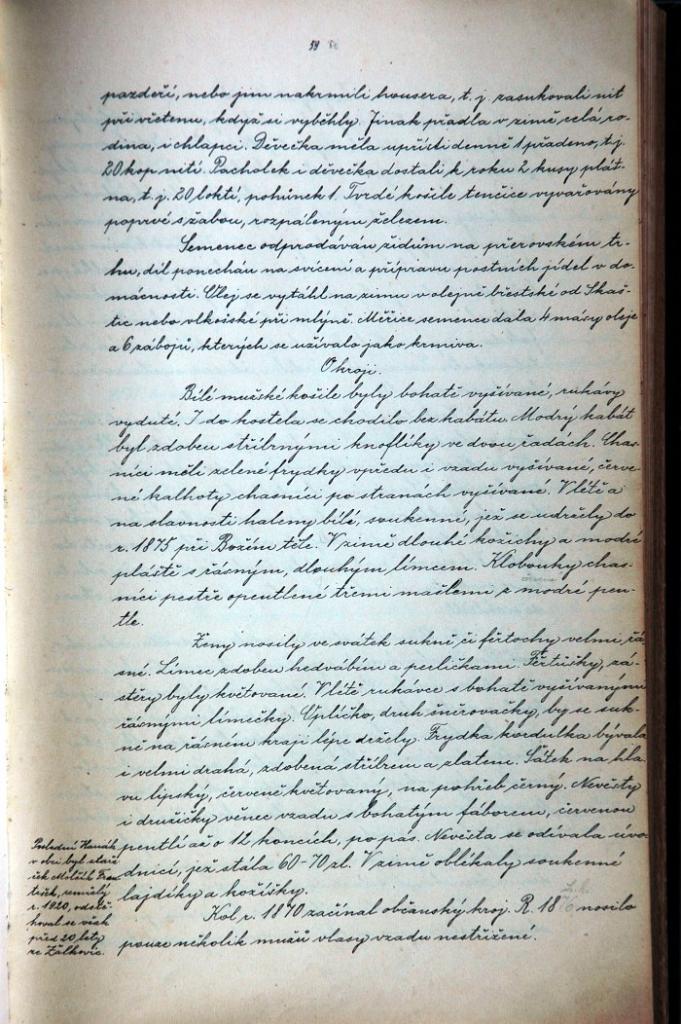 59
pazdeří, nebo jim nakrmili housera, t. j. zasukovali nit
při vřetenu, když si vyběhly. Jinak předla v zimě celá ro-
dina, i chlapci. Děvečka měla upřísti denně 1 předeno, t. j.
20 kop nití. Pacholek i děvečka dostali k roku 2 kusy plát-
na, t. j. 20 loktí, pohůnek 1. Tvrdé košile tenčice vyvařovány
poprvé s žabou, rozpáleným železem.
Semenec odprodáván židům na přerovském tr-
hu, díl ponechán na svícení a přípravu postních jídel v do-
mácnosti. Olej se vytáhl na zimu v olejně břestské od Skaš-
tic nebo vlkošské při mlýně. Měřice semence dala 4 másy oleje
a 6 zábojů, kterých se užívalo jako krmiva.
O kroji.
Bílé mužské košile byly bohatě vyšívané, rukávy
vyduté. I do kostela se chodilo bez kabátu. Modrý kabát
byl zdoben stříbrnými knoflíky ve dvou řadách. Chas-
níci měli zelené frydky vpředu i vzadu vyšívané, červe-
né kalhoty chasníci po stranách vyšívané. V létě a
na slavnosti haleny bílé, soukenné, jež se udržely do
r. 1875 při Božím těle. V zimě dlouhé kožichy a modré
pláště s řásným, dlouhým límcem. Klobouky chas-
níci pestře opentlené třemi mašlemi z modré pen-
tle.
Ženy nosily ve svátek sukně či fěrtochy velmi řá-
sné. Límec zdoben hedvábím a perličkami. Fěrtůšky, zá-
stěry byly květované. V létě rukávce s bohatě vyšívanými
řásnými límečky. Oplíčko, druh šněrovačky, by se suk-
ně na řásném kraji lépe držely. Frydka kordulka bývala
i velmi drahá, zdobená stříbrem a zlatem. Šátek na hla-
vu lipský, červeně květovaný, na pohřeb černý. Nevěsty
i družičky věnec vzadu s bohatým fáborem, červenou
pentlí až o 12 koncích, po pás. Nevěsta se odívala úvo-
dnicí, jež stála 60-70 zl. V zimě oblékaly soukenné
lajdíky a kožíšky.
Kol r. 1870 začínal občanský kroj. R. 18 nosilo
pouze několik mužů vlasy vzadu nestřižené.
Poslední Hanák
v obci byl stař-
ík Fran
tišek, zemřelý
r. 1920, odstě-
hoval se však
před 20 lety
ze Žalkovic.